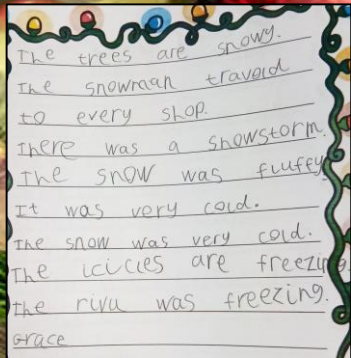 The trees are snowy.
The snowman travold
to every shop.
There was a snowstorm.
The snow was fluffy
It was very cold.
The snow was very cold.
The icicies are freezing.
the rivu was freezing.
Grace